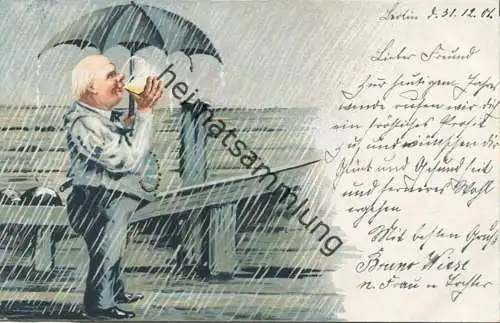 Berlin d. 31.12.01.
Lieber Freund
Zur heutigen Jahres
wende rufen wir dir
ein fröhliches Prosit
zu und wünschen dir
Glück und Gesundheit
und ferneres Wohl
ergehen
Mit besten Gruß
Bruno Wiese
n. Frau u Tochter
heimatsammlung